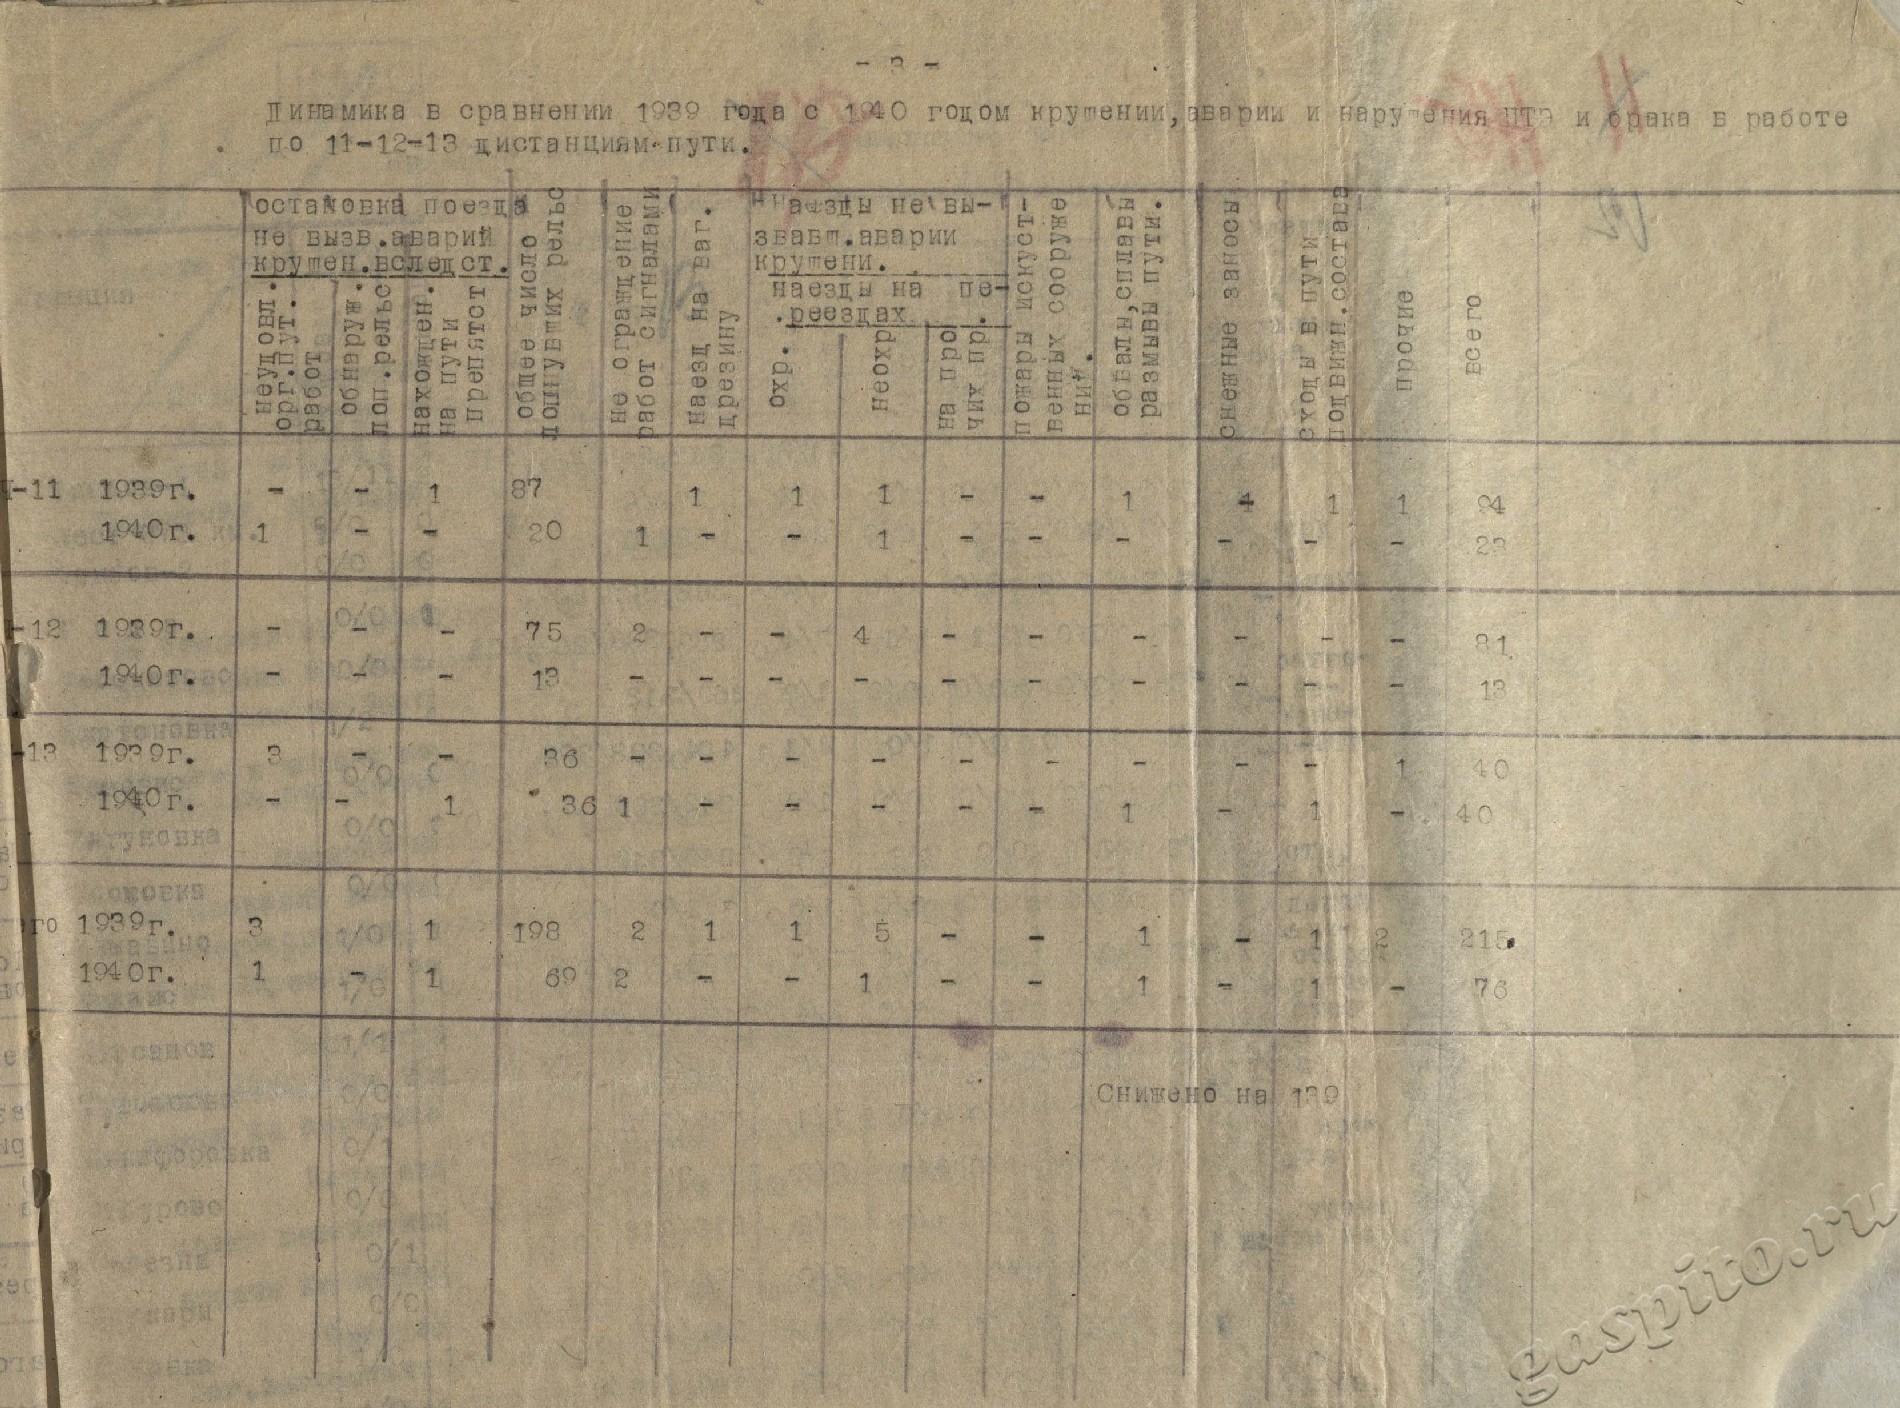 - 3 -
Динамика в сравнении 1939 года с 1940 годом крушении,аварии и нарушения ПТЭ и брака в работе
по 11-12-13 дистанциям пути.
остановка поезда
не вызв.аварий
крушен.вследст.
неудовл.
орг.пут.
работ
обнаруж.
лоп.рельс
нахожден.
на пути
препятст
общее число
лопнувших рельс
не ограждение
работ сигналами
наезд на ваг.
дрезину
наезды не вы-
звавш.аварии
крушени.
наезды на пе-
реездах.
охр.
неохр
на про
чих пр.
пожары искуст-
венных сооруже
ний.
обвалы,сплавы
размывы пути.
снежные заносы
сходы в пути
подвижн.состава
прочие
всего
-11 1939г. - - 1 87 1 1 1 - - 1 - 1 1 94
1940г. 1 - - 20 1 - - 1 - - - - - - 23
-12 1939г. - - - 75 2 - - 4 - - - - - - 81
1940г. - - - 13 - - - - - - - - - - 13
-13 1939г. 3 - - 36 - - - - - - - - - 1 40
1940г. - - 1 36 1 - - - - - 1 - 1 - 40
го 1939г. 3 1 198 2 1 1 5 - - 1 - 1 2 215
1940г. 1 - 1 69 2 - - 1 - - 1 - 1 - 76
Снижено на 139
gaspito.ru